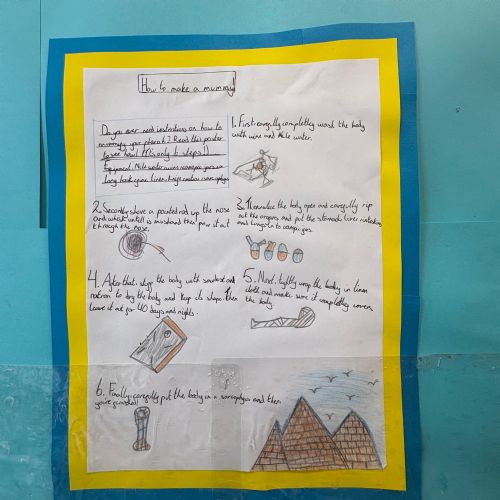 How to make a mummy!
Do you ever need instructions on how to
mummify your pharaoh? Read this poster
to see how! It's only 6 steps!!
Equipment: Nile water canopic jars
long hook linen sarcophagus
1. First carefully completely wash the body
with wine and Nile water.
2. Secondly shove a pointed rod up the nose
and whisk untill is mushed then pour it out
through the nose.
3. Then slice the body open and carefully rip
out the organs and put the stomach liver intestines
and lungs in to canopic jars.
4. After that, stuff the body with sawdust and
natron to dry the body and keep its shape. Then
leave it at for 40 days and nights.
5. Next, tightly wrap the body in linen
cloth and make sure it completely covers
the body.
6. Finally, carefully put the body in a sarcophagus and then
you're finished!